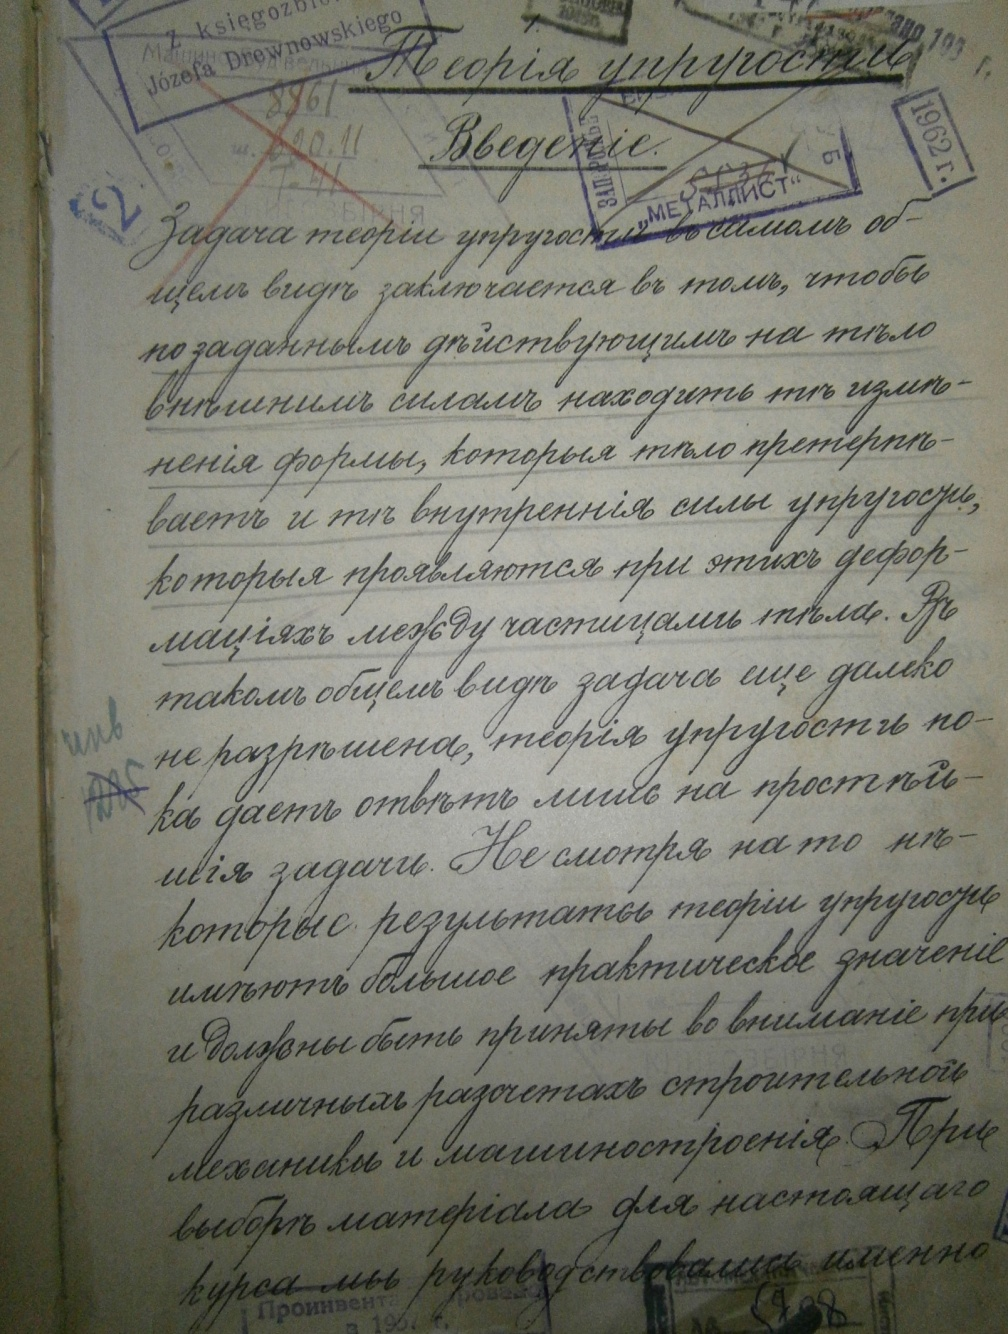 z księgozbioru
Józefa Drewnowskiego
1.
Теорія упругости
Введеніе.
8861
1962 г.
"МЕТАЛЛИСТ"
Задача теоріи упругости въ самомъ об-
щемъ видѣ заключается въ томъ, чтобы
по заданнымъ дѣйствующимъ на тѣло
внѣшнимъ силамъ находить тѣ измѣ-
ненія формы, которыя тѣло претерпѣ-
ваетъ и тѣ внутреннія силы упругости,
которыя проявляются при этихъ дефор-
маціяхъ между частицами тѣла. Въ
такомъ общемъ видѣ задача еще далеко
не разрѣшена, теорія упругости по-
ка даетъ отвѣтъ лишь на простѣй-
шія задачи. Не смотря на то нѣ-
которые результаты теоріи упругости
имѣютъ большое практическое значеніе
и должны быть приняты во вниманіе при
различныхъ разсчетахъ строительной
механики и машиностроенія. При
выборѣ матеріала для настоящаго
курса мы руководствовались именно
Проинвент